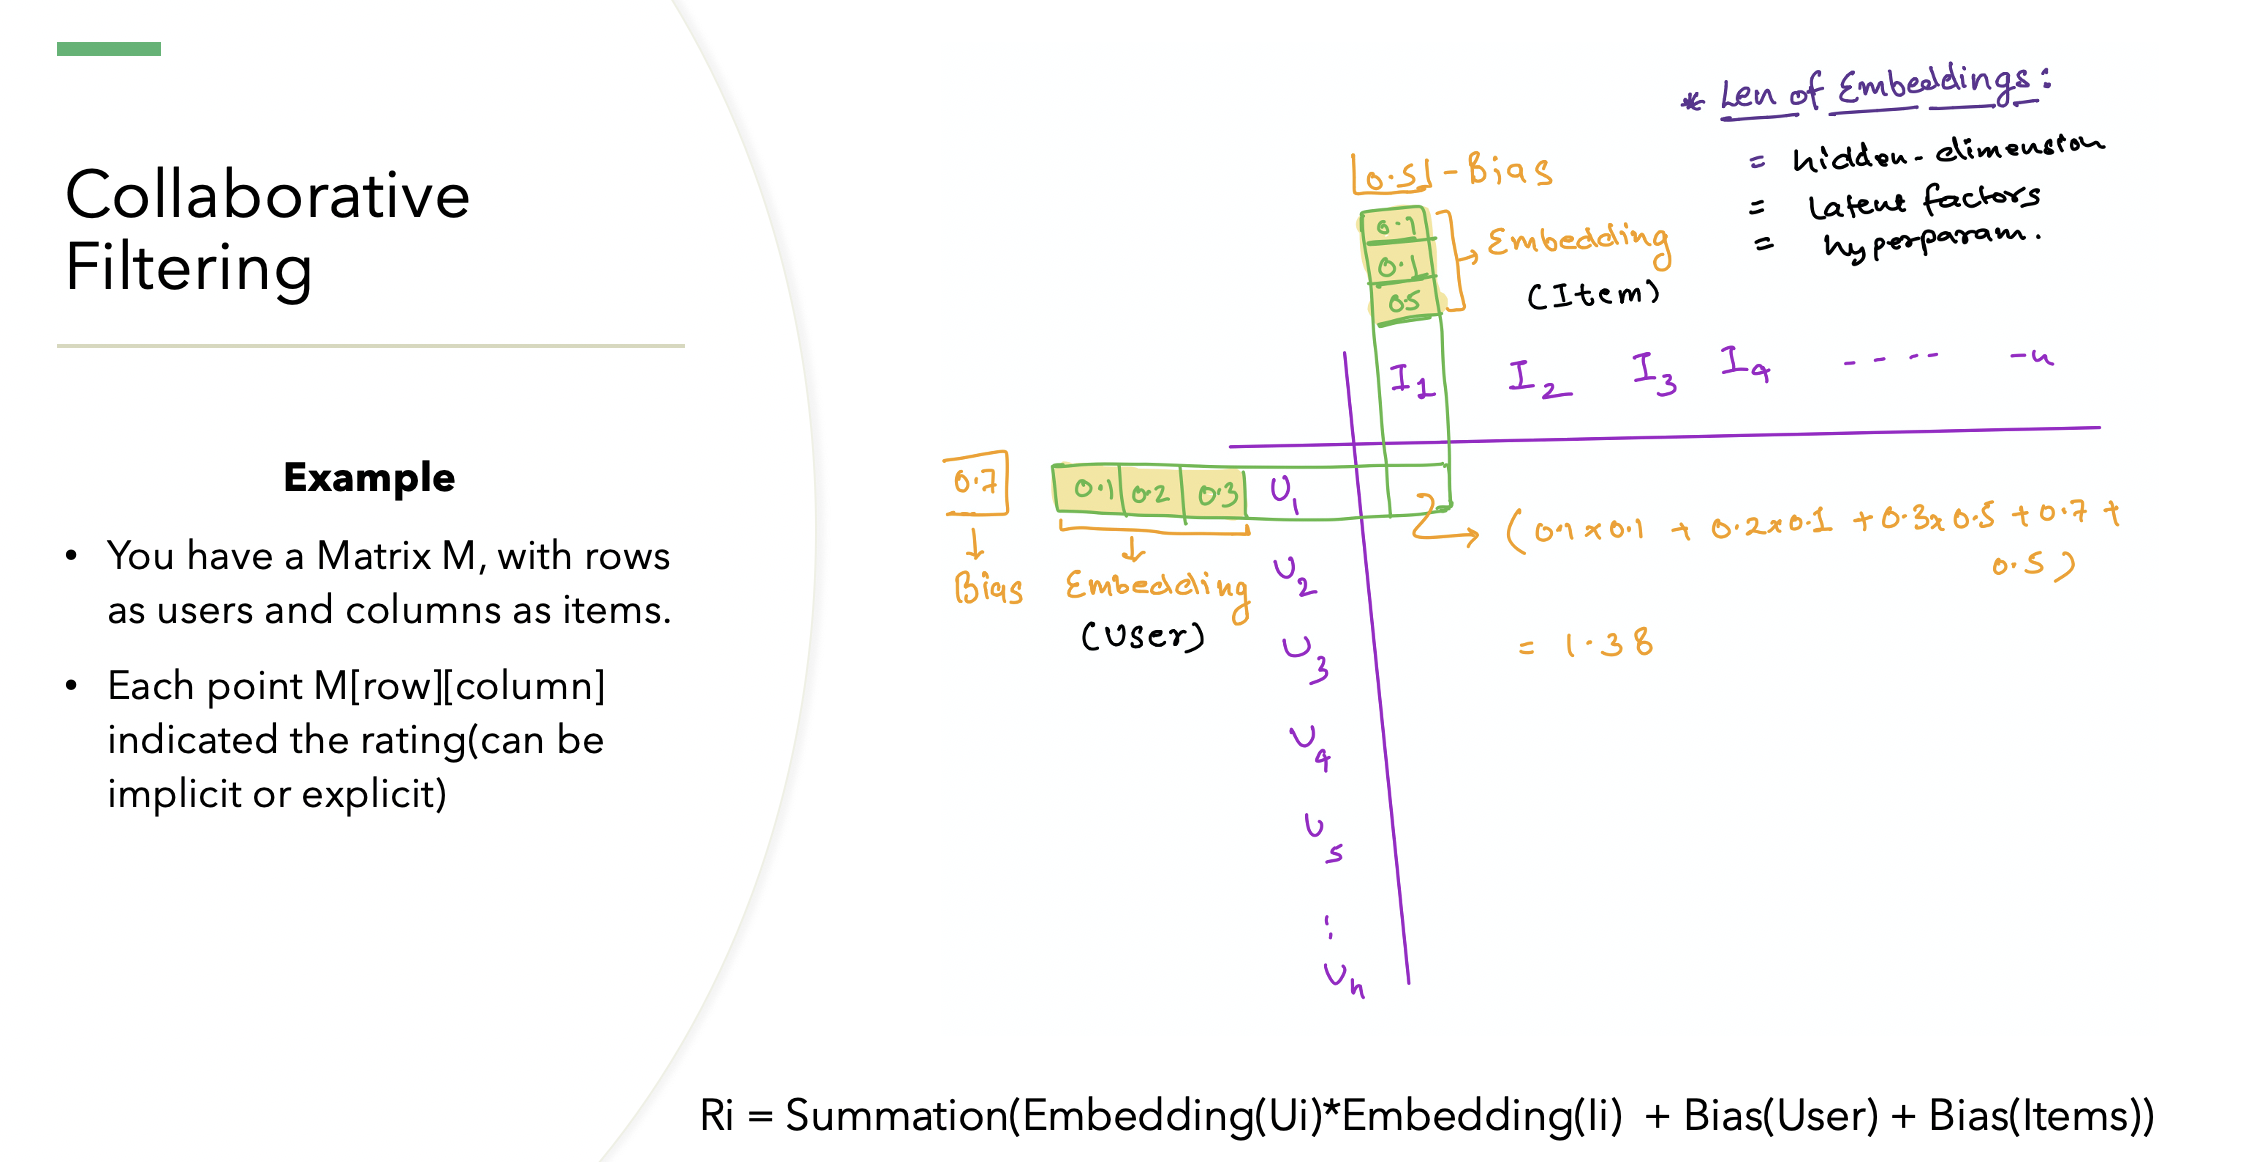 Collaborative
Filtering
Example
• You have a Matrix M, with rows
as users and columns as items.
• Each point M[row][column]
indicated the rating(can be
implicit or explicit)
* Len of Embeddings:
= hidden-dimension
= latent factors
= hyperparam.
0.5 - Bias
0.1
0.1
0.5
Embedding
(Item)
I1 I2 I3 I4 ---- -n
0.7 0.1 0.2 0.3 U1
Bias Embedding
(User)
U2
U3
U4
U5
:
Un
(0.1x0.1 + 0.2x0.1 + 0.3x0.5 + 0.7 +
0.5)
= 1.38
Ri = Summation(Embedding(Ui)*Embedding(Ii) + Bias(User) + Bias(Items))